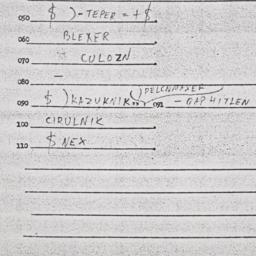 050 $ )-TEPER = + $
060 BLEXER
070 + CULOZN
080 —
090 $ )KAZUKNIK 091 - GAP HITLEN
100 CIRULNIK
110 $ NEX